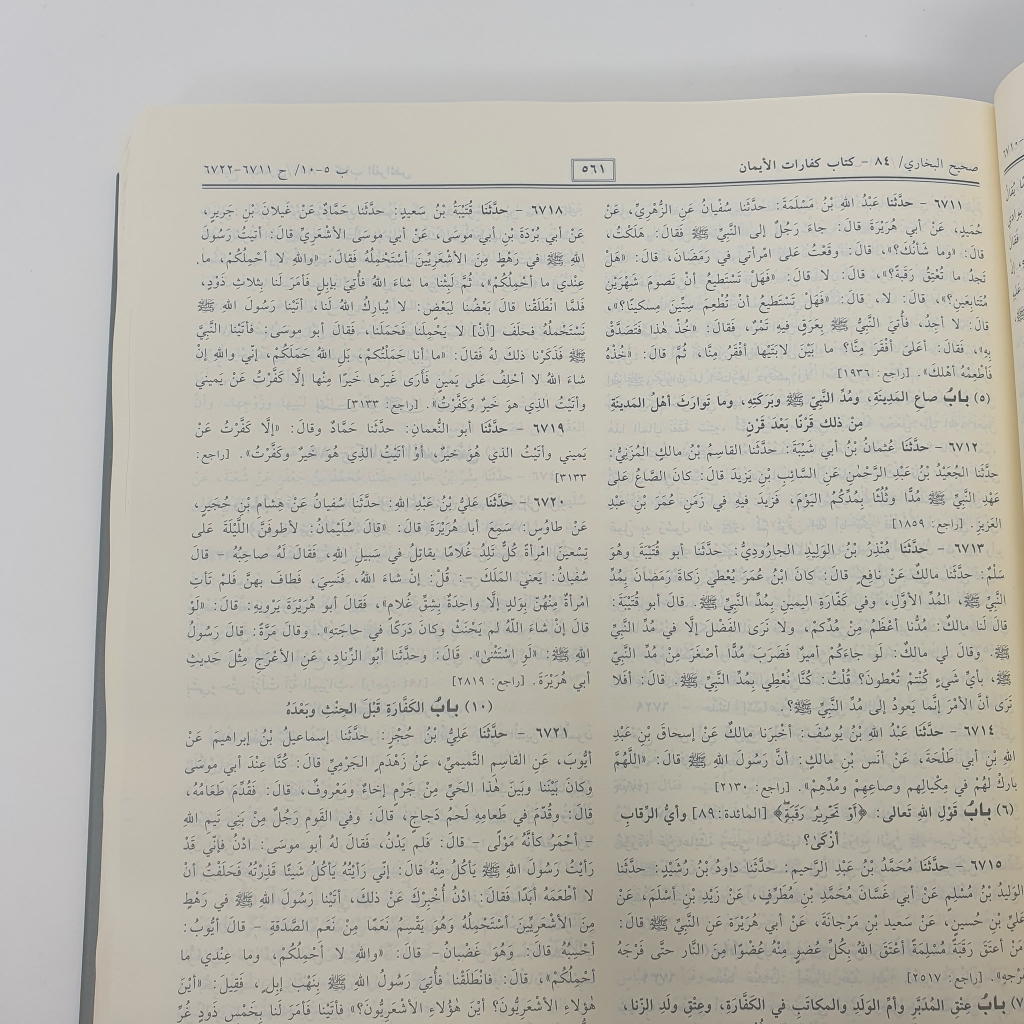 صحيح البخاري/ ٨٤ – كتاب كفارات الأيمان
٥٦١
ب ٥-١٠/ ح ٦٧١١-٦٧٢٢
٦٧١١ – حدَّثَنا عَبْدُ اللهِ بْنُ مَسْلَمَةَ: حدَّثَنا سُفْيانُ عَنِ الزُّهْرِيِّ، عَنْ
حُمَيْدٍ، عَنْ أبي هُرَيْرَةَ قالَ: جاءَ رَجُلٌ إلى النَّبِيِّ ﷺ فَقالَ: هَلَكْتُ،
قالَ: «وما شَأنُكَ؟»، قالَ: وقَعْتُ عَلى امْرأتي في رَمَضانَ، قالَ: «هَلْ
تَجدُ ما تُعْتِقُ رَقَبةً؟»، قالَ: لا قالَ: «فَهَلْ تَسْتَطيعُ أنْ تَصومَ شَهْرَيْنِ
مُتَتابِعَينِ؟»، قالَ: لا، قالَ: «فَهَلْ تَسْتَطيعُ أنْ تُطْعِمَ سِتِّينَ مِسكينًا؟»،
قالَ: لا أجِدُ، فَأُتيَ النَّبِيُّ ﷺ بِعَرَقٍ فيهِ تَمْرٌ، فَقالَ: «خُذْ هٰذا فَتَصَدَّقْ
بِهِ»، فَقالَ: أعَلىَ أفْقَرَ مِنَّا؟ ما بَيْنَ لابَتَيْها أفْقَرُ مِنَّا، ثُمَّ قالَ: «خُذْهُ
فَأطْعِمْهُ أهْلكَ». [راجع: ١٩٣٦]
(٥) بابُ صاعِ المَدِينَةِ، ومُدِّ النَّبِيِّ ﷺ وبَرَكَتِهِ، وما تَوارَثَ أهْلُ المَدينَةِ
مِنْ ذلك قَرْنًا بَعْدَ قَرْنٍ
٦٧١٢ – حدَّثَنا عُثمانُ بْنُ أبي شَيْبَةَ: حدَّثَنا القاسِمُ بْنُ مالكٍ المُزَنِيُّ:
حدَّثَنا الجُعَيْدُ بْنُ عَبْدِ الرَّحْمٰنِ عَنِ السَّائِبِ بْنِ يَزيدَ قالَ: كانَ الصَّاعُ عَلى
عَهْدِ النَّبِيِّ ﷺ مُدًّا وثُلُثًا بِمُدِّكُمُ اليَوْمَ، فَزيدَ فيهِ في زَمَنِ عُمَرَ بْنِ عَبْدِ
العَزيزِ. [راجع: ١٨٥٩]
٦٧١٣ – حدَّثَنا مُنْذِرُ بْنُ الوَليدِ الجاروديُّ: حدَّثَنا أبو قُتَيْبَةَ وهُوَ
سَلْمٌ: حدَّثَنا مالكٌ عَنْ نافِعٍ قالَ: كانَ ابْنُ عُمَرَ يُعْطي زَكاةَ رَمَضانَ بِمُدِّ
النَّبِيِّ ﷺ، المُدِّ الأوَّلِ، وفي كَفَّارَةِ اليمينِ بِمُدِّ النَّبِيِّ ﷺ. قالَ أبو قُتَيْبَةَ:
قالَ لَنا مالكٌ: مُدُّنا أعْظَمُ مِنْ مُدِّكمْ، ولا نَرَى الفَضْلَ إلَّا في مُدِّ النَّبِيِّ
ﷺ. وقالَ لي مالكٌ: لَو جاءَكُمْ أميرٌ فَضَرَبَ مُدًّا أصْغَرَ مِنْ مُدِّ النَّبِيِّ
ﷺ، بِأيِّ شَيءٍ كُنْتُمْ تُعْطونَ؟ قُلْتُ: كُنَّا نُعْطِي بِمُدِّ النَّبِيِّ ﷺ. قالَ: أفَلا
تَرَى أنَّ الأمْرَ إنَّما يَعودُ إلى مُدِّ النَّبِيِّ ﷺ؟.
٦٧١٤ – حدَّثَنا عَبْدُ اللهِ بْنُ يُوسُفَ: أخْبَرَنا مالكٌ عَنْ إسحاقَ بْنِ عَبْدِ
اللهِ بْنِ أبي طَلْحَةَ، عَنْ أنَسِ بْنِ مالكٍ: أنَّ رَسولَ اللهِ ﷺ قالَ: «اللَّهُمَّ
بارِكْ لهُمْ في مِكْيالِهِم وصاعِهِمْ ومُدِّهِمْ». [راجع: ٢١٣٠]
(٦) بابُ قَوْلِ اللهِ تَعالى: ﴿أَوْ تَحْرِيرُ رَقَبَةٍ﴾ [المائدة: ٨٩] وأيُّ الرِّقابِ
أزْكَىٰ؟
٦٧١٥ – حدَّثَنا مُحَمَّدُ بْنُ عَبْدِ الرَّحيم: حدَّثَنا داودُ بْنُ رُشَيْدٍ: حدَّثَنا
الوَليدُ بْنُ مُسْلِمٍ عَنْ أبي غَسَّانَ مُحَمَّدِ بْنِ مُطَرِّفٍ، عَنْ زَيْدِ بْنِ أسْلَمَ، عَنْ
عَليِّ بْنِ حُسينٍ، عَنْ سَعيدِ بْنِ مَرْجانَةَ، عَنْ أبي هُرَيْرَةَ عَنِ النَّبِيِّ ﷺ قالَ:
مَنْ أعتَقَ رَقَبَةً مُسْلِمَةً أعْتَقَ اللهُ بِكُلِّ عُضوٍ مِنْهُ عُضْوًا مِنَ النَّارِ حتَّى فَرْجَهُ
بفَرجِهِ». [راجع: ٢٥١٧]
(٧) بابُ عِتْقِ المُدَبَّرِ وأمِّ الوَلَدِ والمكاتَبِ في الكَفَّارَةِ، وعِتْقِ ولَدِ الزِّنا،
٦٧١٨ – حدَّثَنا قُتَيْبَةُ بْنُ سَعيدٍ: حدَّثَنا حَمَّادٌ عَنْ غَيلانَ بْنِ جَريرٍ،
عَنْ أبي بُرْدَةَ بْنِ أبي موسَى، عَنْ أبي موسَى الأشْعَرِيِّ قالَ: أتيْتُ رَسُولَ
اللهِ ﷺ في رَهْطٍ مِنَ الأشْعَرِيِّينَ أسْتَحْمِلُهُ فَقالَ: «واللهِ لا أحْمِلُكُمْ، ما
عِنْدِي ما أحْمِلُكُمْ»، ثُمَّ لَبِثْنا ما شاءَ اللهُ فَأُتِيَ بإبلٍ فأمَرَ لَنا بِثلاثِ ذَوْدٍ،
فَلمَّا انْطَلَقْنا قالَ بَعْضُنا لِبَعْضٍ: لا يُبارِكُ اللهُ لَنا، أتَيْنا رَسُولَ اللهِ ﷺ
نَسْتَحْمِلُهُ فحلَفَ [أنْ] لا يَحْمِلَنا فَحَمَلَنا، فَقالَ أبو موسَى: فأتَيْنا النَّبِيَّ
ﷺ فَذكَرْنا ذلكَ لهُ فَقالَ: «ما أنا حَمَلْتُكمْ، بَلِ اللهُ حَمَلَكُمْ، إنِّي واللهِ إنْ
شاءَ اللهُ لا أحْلِفُ عَلى يَمينٍ فَأرَى غَيرَها خَيرًا مِنْها إلَّا كَفَّرْتُ عَنْ يَميني
وأتيْتُ الذِي هوَ خَيرٌ وَكفَّرْتُ». [راجع: ٣١٣٣]
٦٧١٩ – حدَّثَنا أبو النُّعمانِ: حدَّثَنا حَمَّادٌ وقالَ: «إلَّا كَفَّرْتُ عَنْ
يَميني وأتيْتُ الذي هُوَ خَيْرٌ، أوْ أتَيْتُ الذي هُوَ خَيْرٌ وكَفَّرْتُ». [راجع:
٣١٣٣]
٦٧٢٠ – حدَّثَنا عَليُّ بْنُ عَبْدِ اللهِ: حدَّثَنا سُفيانُ عَنْ هِشامِ بْنِ حُجَيرٍ،
عَنْ طاوُسٍ: سَمِعَ أبا هُرَيْرَةَ قالَ: «قالَ سُلَيْمانُ: لأطوفَنَّ اللَّيْلَةَ على
تِسْعينَ امْرأةً كُلٌّ تَلِدُ غُلامًا يقاتِلُ في سَبيلِ اللهِ، فَقالَ لَهُ صاحِبُهُ – قالَ
سُفيانُ: يَعني المَلَكَ –: قُلْ: إنْ شاءَ اللهُ، فَنَسِيَ، فَطافَ بهِنَّ فلَمْ تَأتِ
امْرأةٌ مِنْهُنَّ بِوَلدٍ إلَّا واحِدَةٌ بِشِقِّ غُلامٍ»، فَقالَ أبو هُرَيْرَةَ يَرْويهِ: قالَ: «لَوْ
قالَ إنْ شاءَ اللهُ لم يَحْنَثْ وكانَ دَرَكًا في حاجَتِهِ». وقالَ مَرَّةً: قالَ رَسُولُ
اللهِ ﷺ: «لَوِ اسْتَثْنىٰ». قَالَ: وحَدَّثَنا أبُو الزِّنادِ، عَنِ الأعْرَجِ مِثْلَ حَديثِ
أبي هُرَيْرَةَ. [راجع: ٢٨١٩]
(١٠) بابُ الكَفَّارَةِ قَبْلَ الحِنْثِ وبَعْدَهُ
٦٧٢١ – حدَّثَنا عَليُّ بْنُ حُجْرٍ: حدَّثَنا إسماعيلُ بْنُ إبراهيمَ عَنْ
أيُّوبَ، عَنِ القاسِمِ التَّميميِّ، عَنْ زَهْدَمٍ الجَرْمِيِّ قالَ: كُنَّا عِنْدَ أبي موسَى
وكانَ بَيْنَنا وبَينَ هٰذا الحَيِّ مِنْ جَرْمٍ إخاءٌ ومَعْروفٌ، قالَ: فَقُدِّمَ طَعامُهُ،
قالَ: وقُدِّمَ في طَعامِهِ لَحمُ دَجاجٍ، قالَ: وفي القَومِ رَجُلٌ مِنْ بَنِي تَيمِ اللهِ
– أحْمَرُ كأنَّهُ مَوْلًى – قالَ: فَلم يَدْنُ، فَقالَ لهُ أبو موسَى: ادْنُ فَإنِّي قَدْ
رَأيْتُ رَسولَ اللهِ ﷺ يَأكُلُ مِنْهُ قالَ: إنِّي رَأيْتُهُ يَأكُلُ شَيئًا قَذِرْتُهُ فَحَلَفْتُ أنْ
لا أطْعَمَهُ أبَدًا فَقالَ: ادْنُ أُخْبِرْكَ عَنْ ذلكَ، أتَيْنا رَسُولَ اللهِ ﷺ في رَهْطٍ
مِنَ الأشْعَرِيِّينَ أسْتَحْمِلُهُ وَهُوَ يَقْسِمُ نَعَمًا مِنْ نَعَمِ الصَّدَقةِ – قالَ أيُّوبُ:
أحْسِبُهُ قالَ: وَهُوَ غَضْبانُ– قالَ: «واللهِ لا أحْمِلُكُمْ، وما عِندِي ما
أحْمِلُكُمْ»، قالَ: فانْطَلَقْنا فأُتِيَ رَسُولُ اللهِ ﷺ بِنَهْبِ إبلٍ، فَقِيلَ: «أيْنَ
هٰؤلاءِ الأشْعَرِيُّونَ؟ أيْنَ هٰؤُلاءِ الأشْعَرِيُّونَ؟» فأتَيْنا فَأمَرَ لَنا بِخَمْسِ ذَودٍ غُرِّ